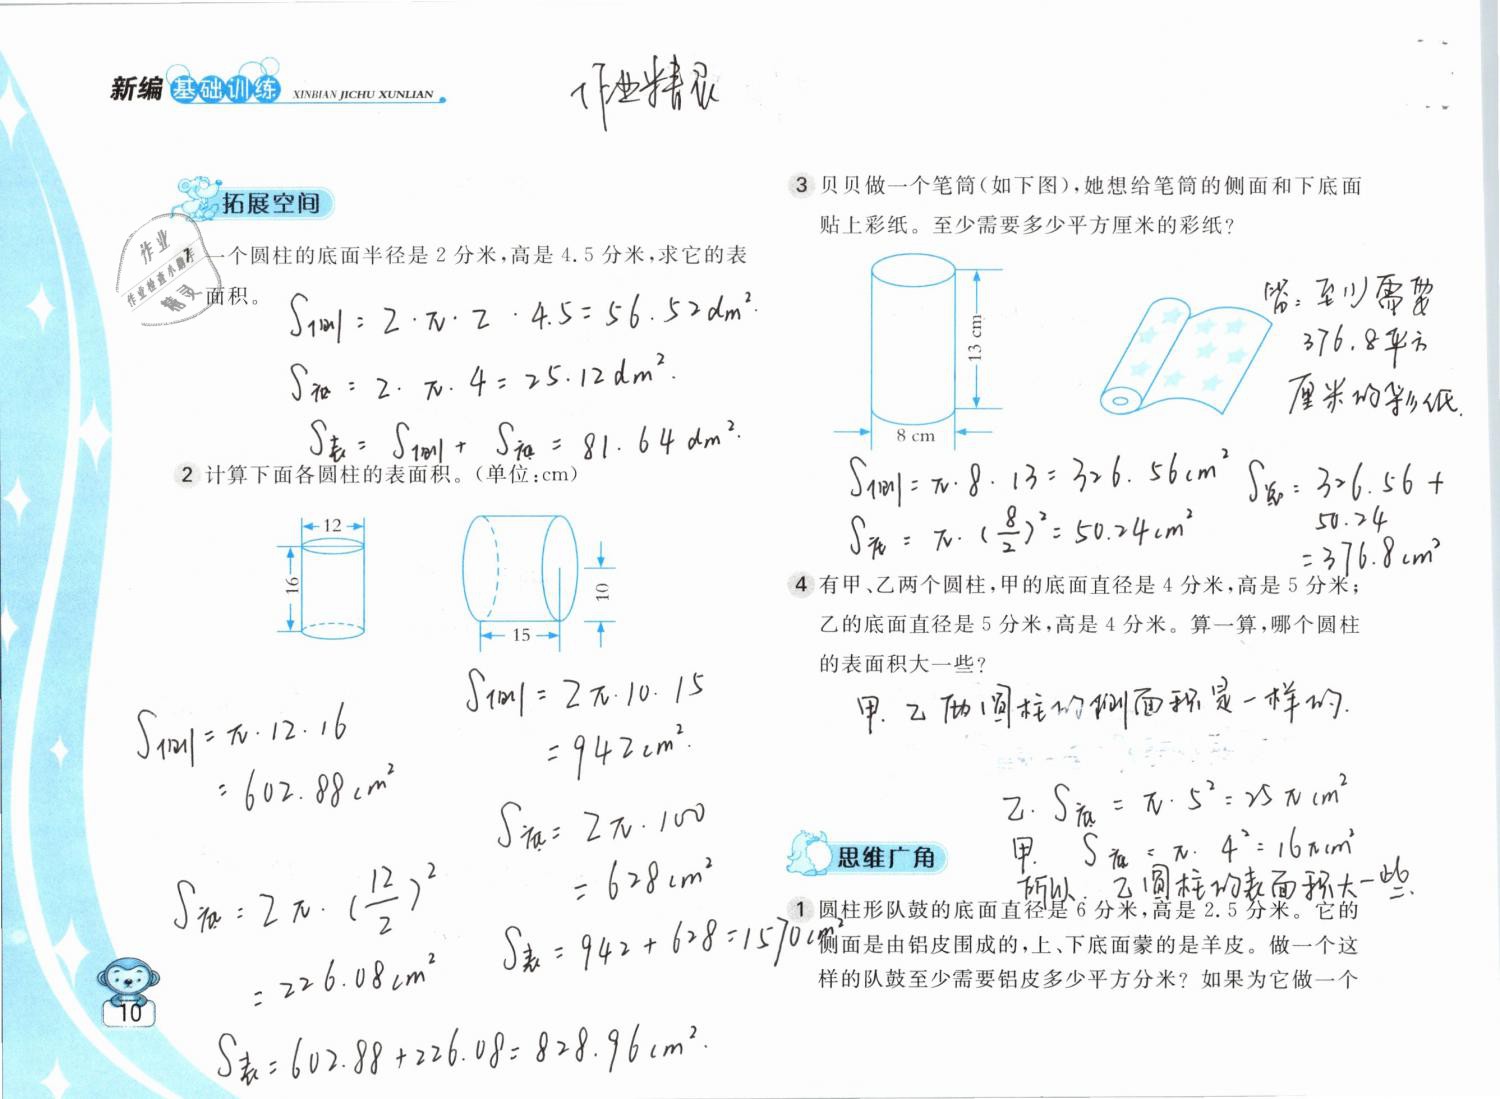 新编 基础训练 XINBIAN JICHU XUNLIAN
作业精灵
拓展空间
作业
作业检查小助手
精灵
一个圆柱的底面半径是 2 分米,高是 4.5 分米,求它的表
面积。
S侧 = 2·π·2·4.5 = 56.52 dm².
S底 = 2·π·4 = 25.12 dm².
S表 = S侧 + S底 = 81.64 dm².
2 计算下面各圆柱的表面积。(单位:cm)
12
16
10
15
S侧 = π·12·16
= 602.88 cm²
S底 = 2π·(12/2)²
= 226.08 cm²
S表 = 602.88 + 226.08 = 828.96 cm².
S侧 = 2π·10·15
= 942 cm².
S底 = 2π·100
= 628 cm²
S表 = 942 + 628 = 1570 cm²
10
3 贝贝做一个笔筒(如下图),她想给笔筒的侧面和下底面
贴上彩纸。至少需要多少平方厘米的彩纸?
13 cm
8 cm
答: 至少需要
376.8平方
厘米的彩纸.
S侧 = π·8·13 = 326.56 cm²
S底 = π·(8/2)² = 50.24 cm²
S总 = 326.56 +
50.24
= 376.8 cm²
4 有甲、乙两个圆柱,甲的底面直径是 4 分米,高是 5 分米;
乙的底面直径是 5 分米,高是 4 分米。算一算,哪个圆柱
的表面积大一些?
甲.乙两圆柱的侧面积是一样的.
乙. S底 = π·5² = 25π cm²
甲. S底 = π·4² = 16π cm²
所以. 乙圆柱的表面积大一些.
思维广角
1 圆柱形队鼓的底面直径是 6 分米,高是 2.5 分米。它的
侧面是由铝皮围成的,上、下底面蒙的是羊皮。做一个这
样的队鼓至少需要铝皮多少平方分米? 如果为它做一个